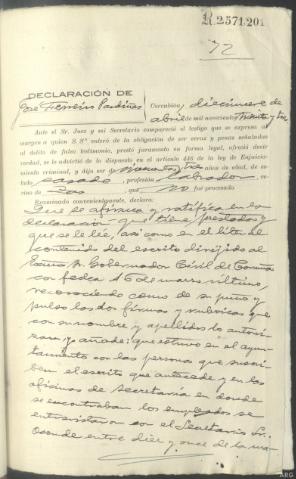 R.2571.201
72
DECLARACIÓN DE
José Ferreiro Pardiñas
Corcubión diecinueve de
abril de mil novecientos treinta y tres
Ante el Sr. Juez y mi Secretario compareció el testigo que se expresa al
margen a quien S. Sª enteró de la obligación de ser veraz y penas señaladas
al delito de falso testimonio, prestó juramento en forma legal, ofreció decir
verdad, se le advirtió de lo dispuesto en el artículo 446 de la ley de Enjuicia-
miento criminal, y dijo ser de cuarenta y tres años de edad, de es-
tado casado, profesión labrador, ve-
cino de Zas que no fué procesado
Examinado convenientemente, declara:
Que se afirma y ratifica en la
declaración que tiene prestada y
que se le lée, así como en el
contenido del escrito dirigido al
Excmo. Sr. Gobernador Civil de Coruña
con fecha 16 de marzo último,
reconociendo como de su puño y
pulso las dos firmas y rúbricas que
con su nombre y apellidos lo autori-
zan, y añade: que estuvo en el ayun-
tamiento con las personas que suscri-
ben el escrito que antecede y en las
oficinas de secretaría en donde
se encontraban los empleados se
entrevistaron con el Secretario Sr.
entre diez y once de la ma-
ARG